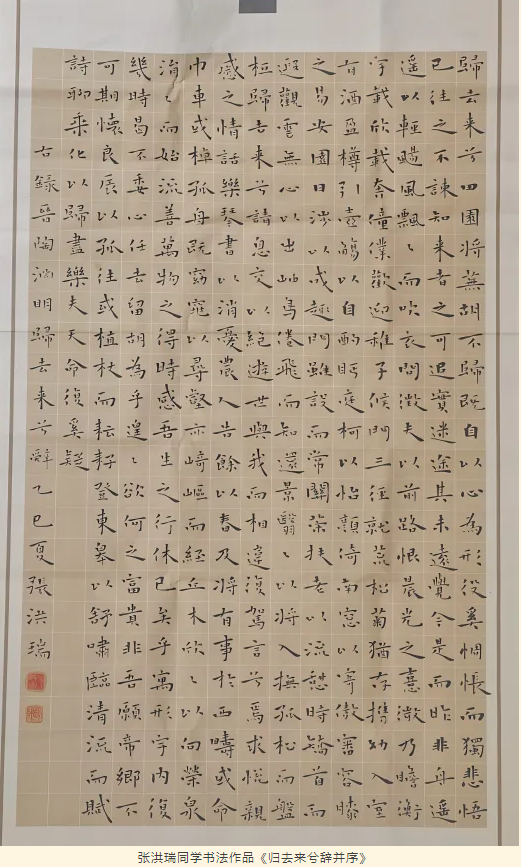 歸去来兮田園將蕪胡不歸既自以心為形役奚惆悵而獨悲悟
已往之不諫知来者之可追實迷途其未遠覺今是而昨非舟遥
遥以輕颺風飄〻而吹衣問徵夫以前路恨晨光之憙微乃瞻衡
宇載欣載奔僮僕歡迎稚子候門三徑就荒松菊猶存携幼入室
有酒盈樽引壺觴以自酌眄庭柯以怡顔倚南窓以寄傲審容膝
之易安園日涉以成趣門雖設而常關策扶老以流憩時矯首而
遐觀雲無心以出岫鳥倦飛而知還景翳〻以將入撫孤松而盤
桓歸去来兮請息交以絶遊世與我而相違復駕言兮焉求悅親
戚之情話樂琴書以消憂農人告餘以春及將有事於西疇或命
巾車或棹孤舟既窈窕以尋壑亦崎嶇而經丘木欣〻以向榮泉
涓〻而始流善萬物之得時感吾生之行休已矣乎寓形宇内復
幾時曷不委心任去留胡為乎遑〻欲何之富貴非吾願帝鄉不
可期懷良辰以孤往或植杖而耘耔登東皋以舒嘯臨清流而賦
詩聊乘化以歸盡樂夫天命復奚疑
右錄晉陶淵明歸去来兮辭乙巳夏張洪瑞
张洪瑞同学书法作品《归去来兮辞并序》